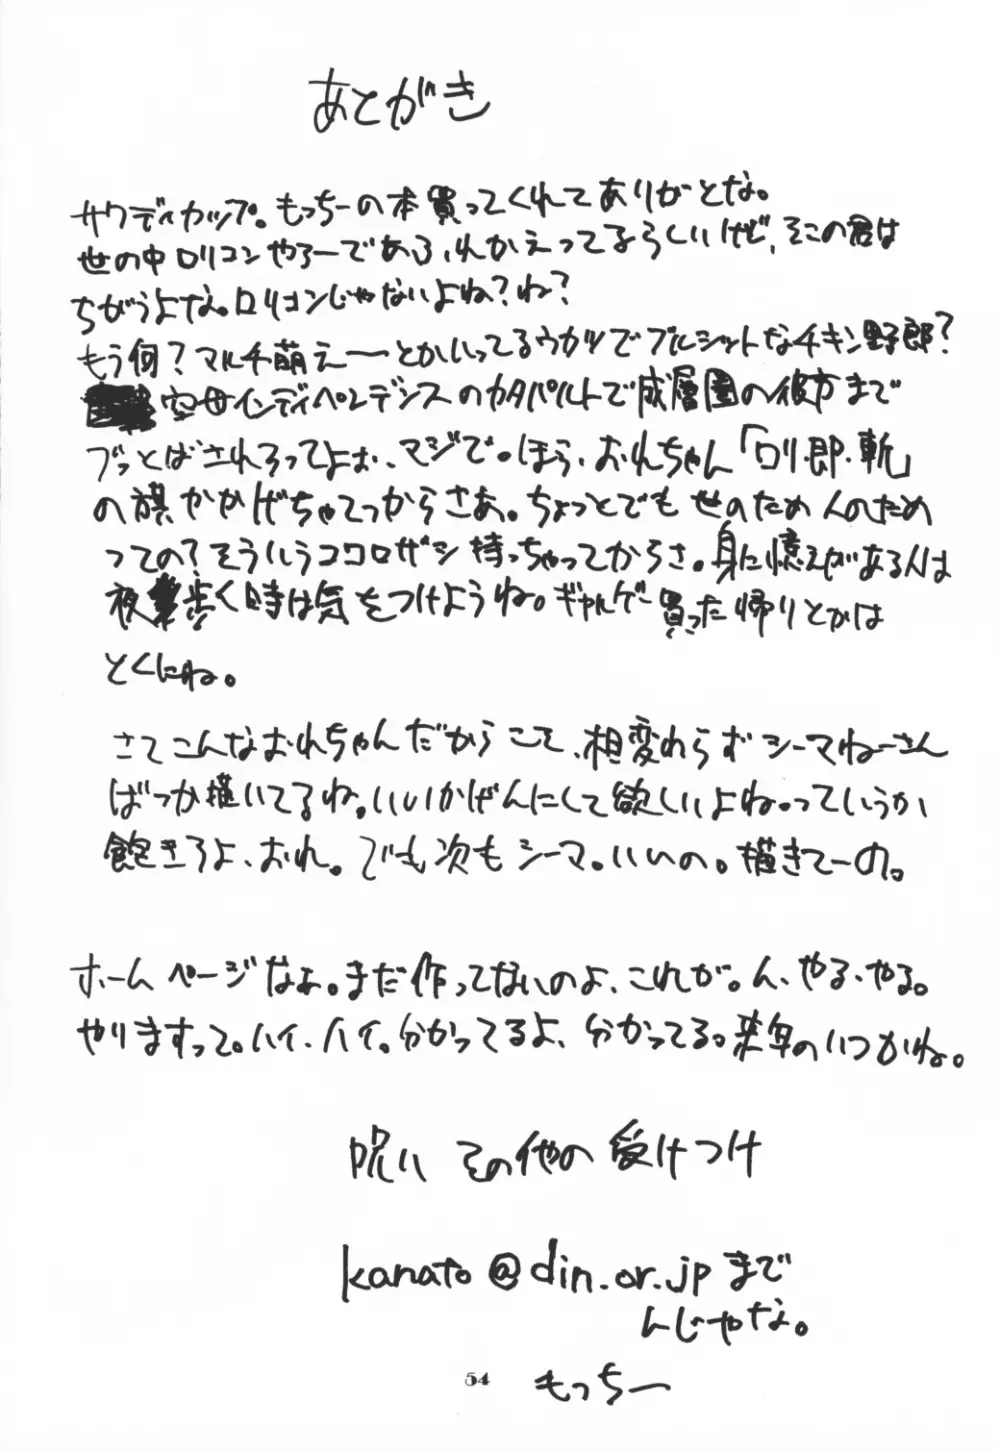 あとがき
サワディカップ。もっちーの本買ってくれてありがとな。
世の中ロリコンやろーであふれかえってるらしいけど、そこの君は
ちがうよな。ロリコンじゃないよね？ね？
もう何？マルチ萌えーーとかいってるウカツでブルシットなチキン野郎？
空母インディペンデンスのカタパルトで成層圏の彼方まで
ブッとばされろってよぉ、マジで。ほら、おれちゃん「ロリ・即・斬」
の旗かかげちゃてっからさあ。ちょっとでも世のため人のため
っての？そういうココロザシ持っちゃってからさ。身に憶えがある人は
夜歩く時は気をつけようね。ギャルゲー買った帰りとかは
とくにね。
さてこんなおれちゃんだからこそ、相変わらずシーマねーさん
ばっか描いてるね。いいかげんにして欲しいよね。っていうか
飽きろよ、おれ。でも次もシーマ。いいの。描きてーの。
ホームページなぁ。まだ作ってないのよ、これが。ん、やる、やる。
やりますって。ハイ、ハイ。分かってるよ、分かってる。来年のいつかね。
呪い その他の受けつけ
kanato@din.or.jpまで
んじゃな。
もっちー
54